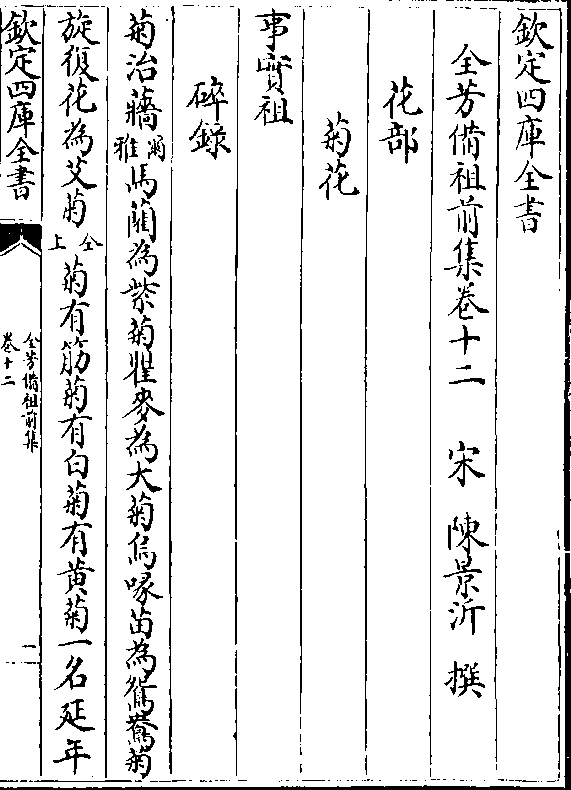 欽定四庫全書
全芳備祖前集卷十二　宋　陳景沂　撰
花部
菊花
事實祖
碎錄
菊治蘠爾雅馬藺為紫菊瞿麥為大菊烏喙苗為鴛鴦菊
旋復花為艾菊仝上菊有筋菊有白菊有黄菊一名延年
欽定四庫全書
全芳備祖前集
卷十二
一